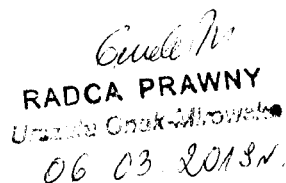 RADCA PRAWNY
Urszula Gnak-Mirowska
06 03. 2019r.